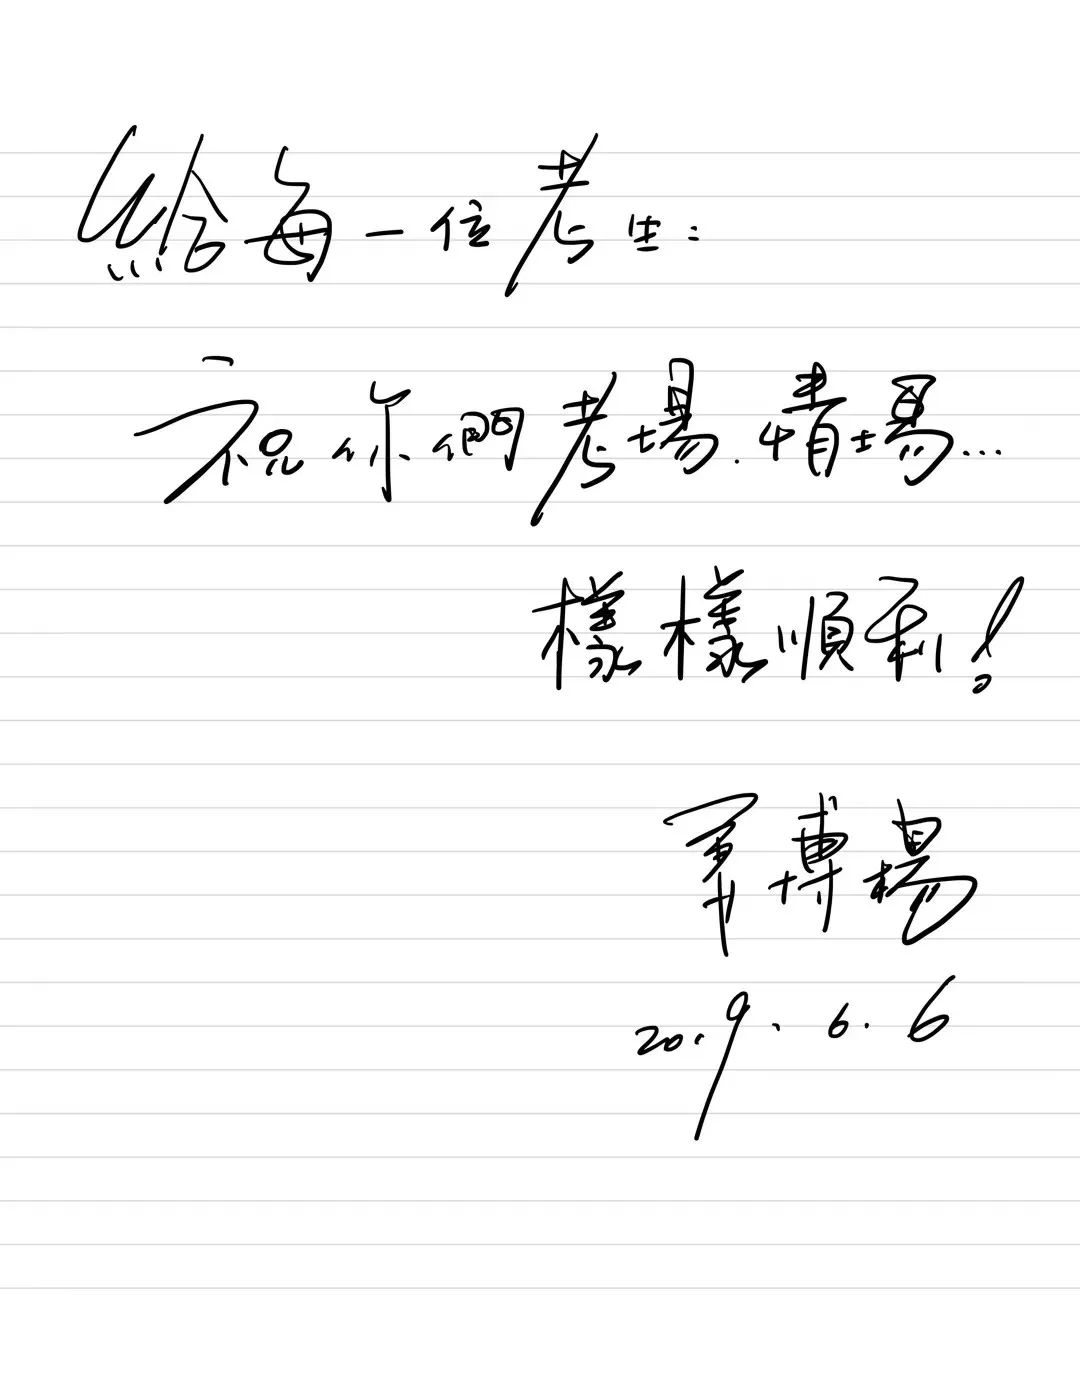 給每一位考生：
祝你們考場.情場...
樣樣順利！
博楊
2019.6.6